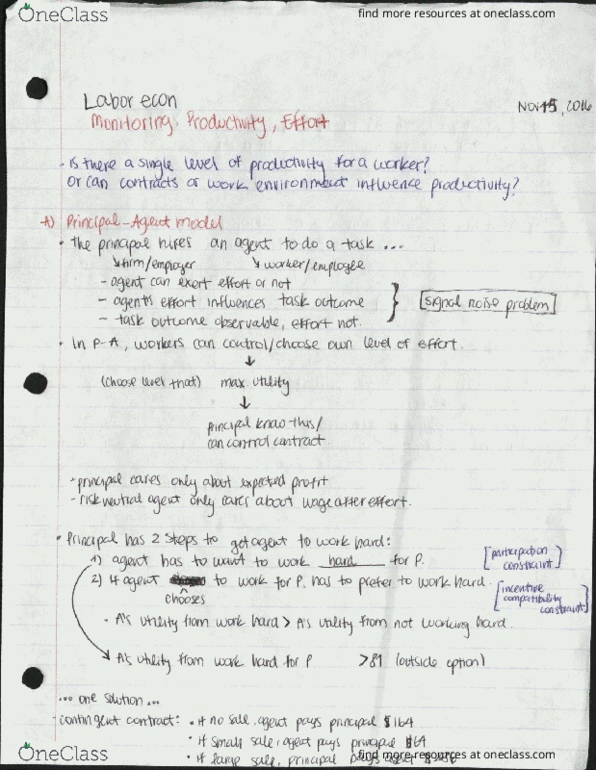 OneClass
find more resources at oneclass.com
Labor econ
Nov 15, 2016
Monitoring, Productivity, Effort
- Is there a single level of productivity for a worker?
Or can contracts or work environment influence productivity?
A) Principal-Agent model
• the principal hires an agent to do a task ...
↳ firm/employer ↘ worker/employee
- agent can exert effort or not
- agent's effort influences task outcome
signal noise problem
- task outcome observable, effort not.
• In P-A, workers can control/choose own level of effort.
↓
(choose level that) max. utility
↓
principal know this/
can control contract
- principal cares only about expected profit
- risk neutral agent only cares about wage after effort.
• Principal has 2 steps to get agent to work hard:
1) agent has to want to work hard for P.
[participation
constraint]
2) If agent chooses to work for P. has to prefer to work hard.
[incentive
compatibility
constraint]
• A's utility from work hard > A's utility from not working hard.
A's utility from work hard for P > 81 (outside option)
... one solution ...
- contingent contract: • if no sale, agent pays principal $164
• if small sale, agent pays principal $64
• if large sale, principal pays agent
OneClass
find more resources at oneclass.com